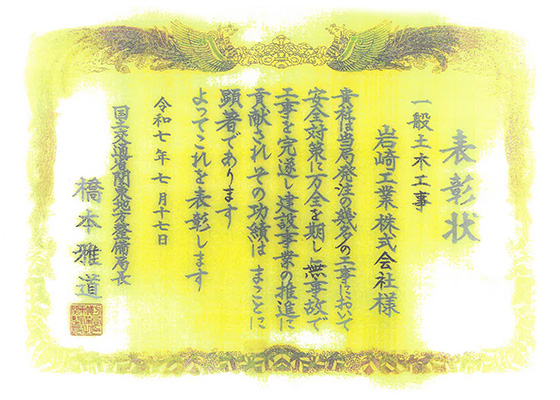 表彰状
一般土木工事
岩﨑工業株式会社様
貴社は当局発注の幾多の工事において
安全対策に万全を期し無事故で
工事を完遂し建設事業の推進に
貢献されその功績はまことに
顕著であります
よってこれを表彰します
令和七年七月十七日
国土交通省関東地方整備局長
橋本雅道